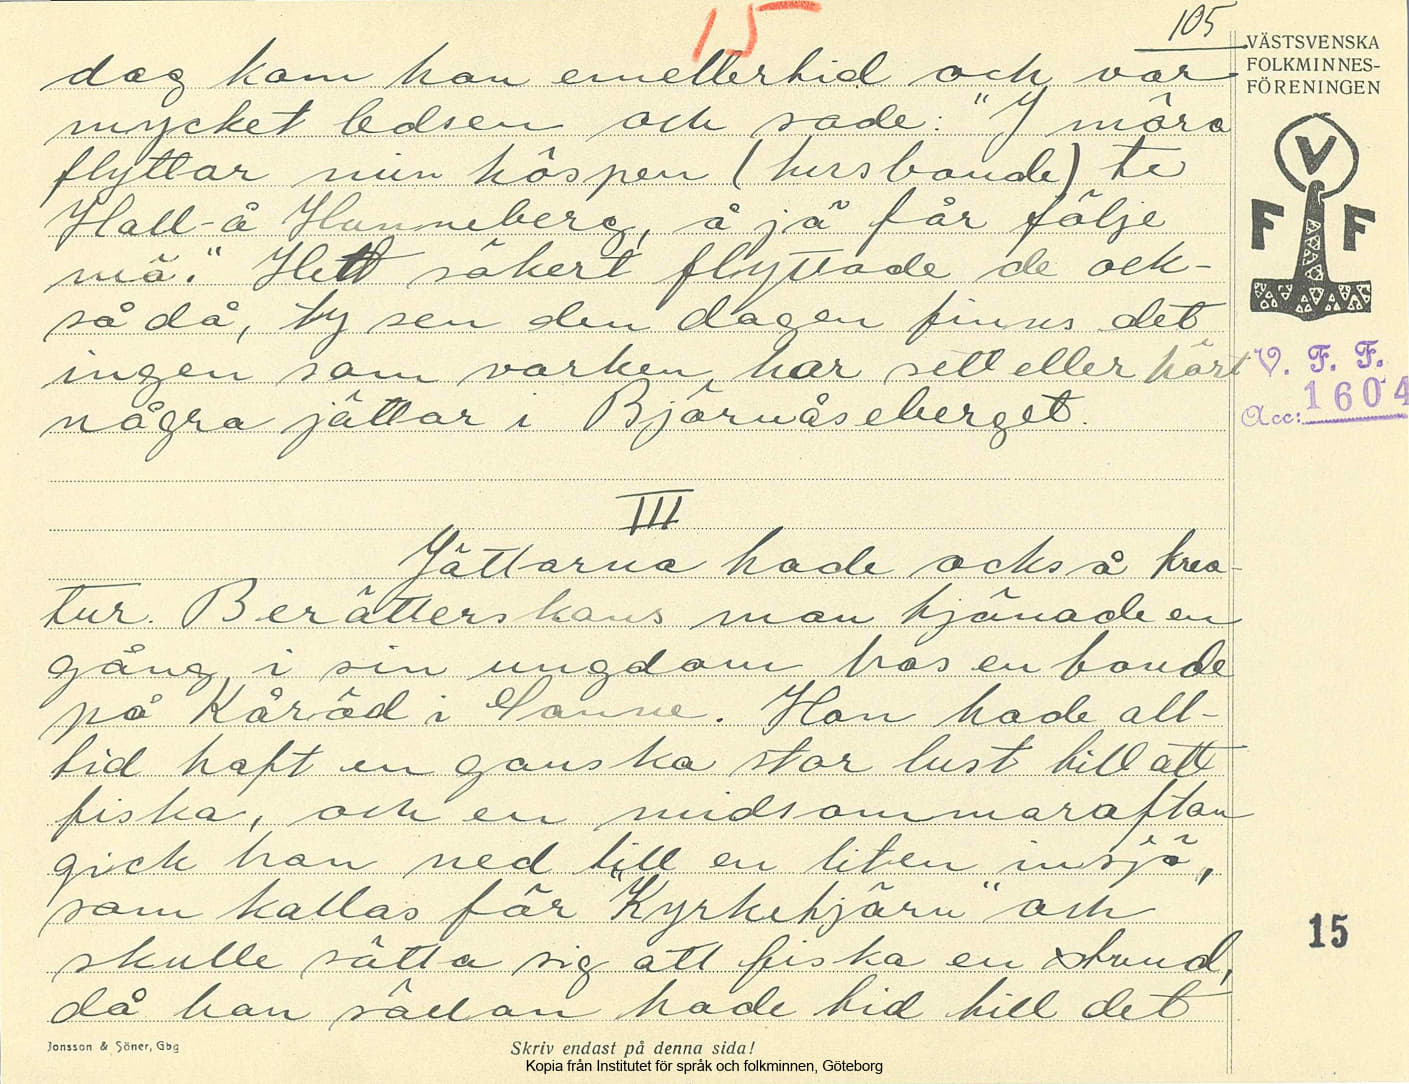 15
105
VÄSTSVENSKA
FOLKMINNES-
FÖRENINGEN
V
F F
V. F. F.
Acc: 1604
dag kom han emellertid och var
mycket ledsen och sade: "I möra
flyttar min höspen (husbonde) te
Hall- å Hunneberg, å jä får följe
mä." Helt säkert flyttade de ock-
så då, ty sen den dagen finns det
ingen som varken har sett eller hört
några jättar i Björnåseberget.
III
Jättarna hade också krea-
tur. Berätterskans man tjänade en
gång i sin ungdom hos en bonde
på Kåröd i Sanne. Han hade all-
tid haft en ganska stor lust till att
fiska, och en midsommarafton
gick han ned till en liten insjö,
som kallas för "Kyrketjärn" och
skulle sätta sig att fiska en stund,
då han sällan hade tid till det
15
Jonsson & Söner, Gbg
Skriv endast på denna sida!
Kopia från Institutet för språk och folkminnen, Göteborg